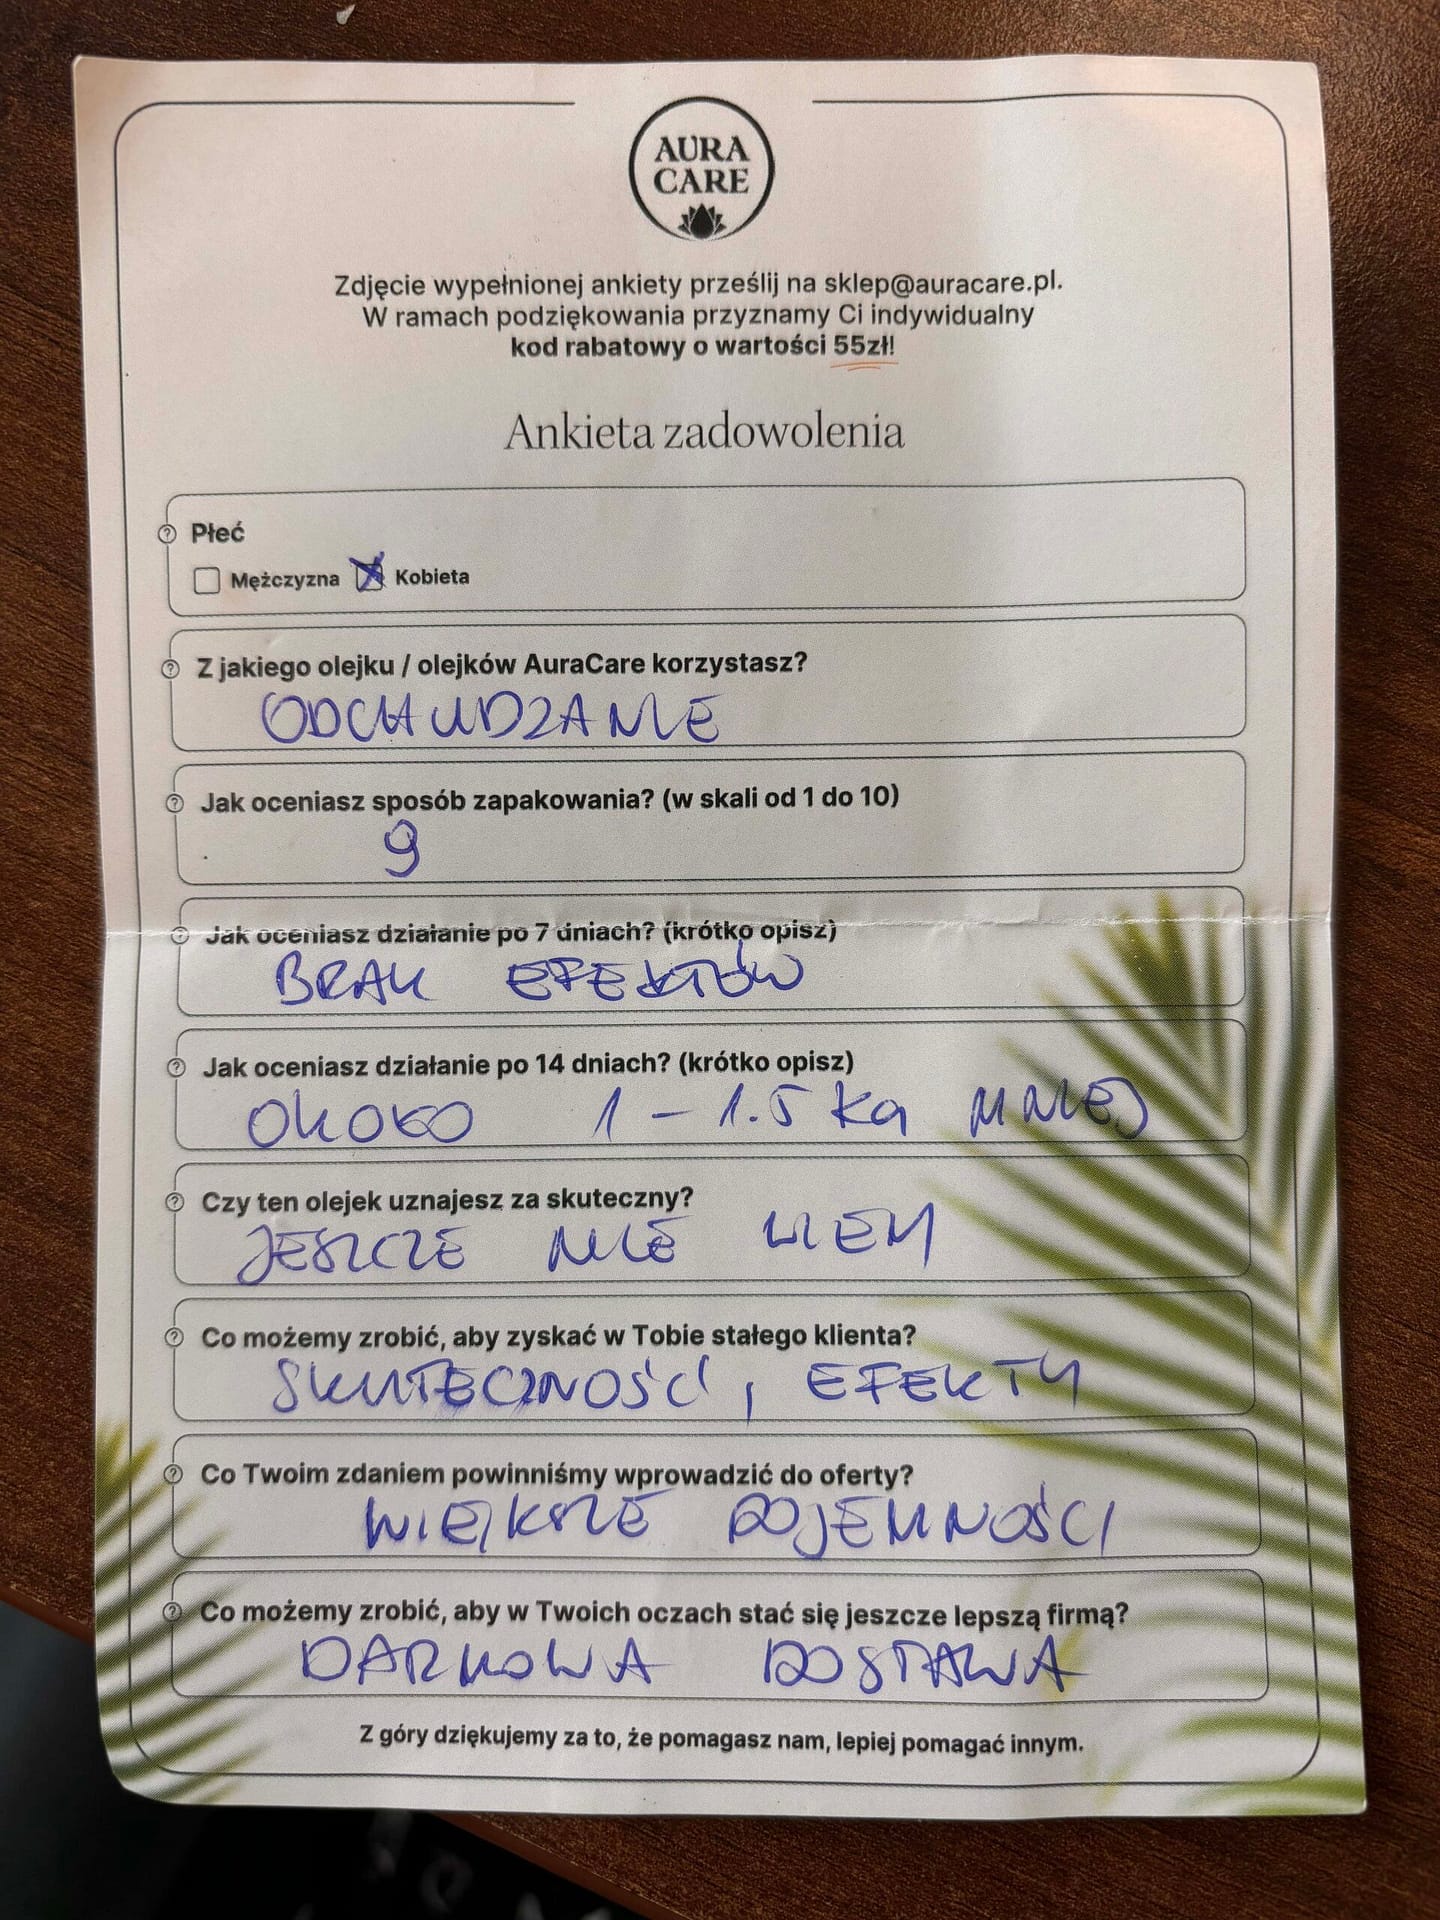 AURA
CARE
Zdjęcie wypełnionej ankiety prześlij na sklep@auracare.pl.
W ramach podziękowania przyznamy Ci indywidualny
kod rabatowy o wartości 55zł!
Ankieta zadowolenia
Płeć
Mężczyzna Kobieta
Z jakiego olejku / olejków AuraCare korzystasz?
ODCHUDZANIE
Jak oceniasz sposób zapakowania? (w skali od 1 do 10)
9
Jak oceniasz działanie po 7 dniach? (krótko opisz)
BRAK EFEKTÓW
Jak oceniasz działanie po 14 dniach? (krótko opisz)
OKOŁO 1 - 1.5 KG MNIEJ
Czy ten olejek uznajesz za skuteczny?
JESZCZE NIE WIEM
Co możemy zrobić, aby zyskać w Tobie stałego klienta?
SKUTECZNOŚĆ, EFEKTY
Co Twoim zdaniem powinniśmy wprowadzić do oferty?
WIĘKSZE POJEMNOŚCI
Co możemy zrobić, aby w Twoich oczach stać się jeszcze lepszą firmą?
DARMOWA DOSTAWA
Z góry dziękujemy za to, że pomagasz nam, lepiej pomagać innym.